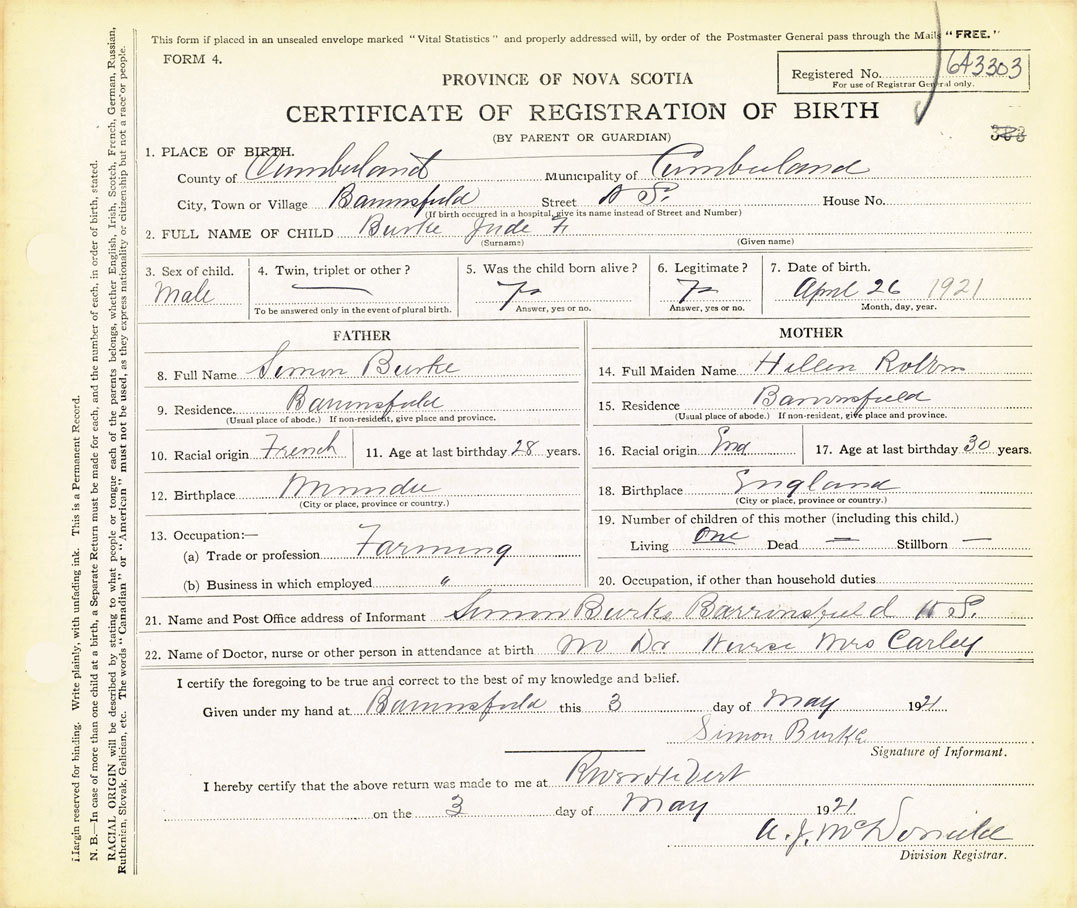 This form if placed in an unsealed envelope marked "Vital Statistics" and properly addressed will, by order of the Postmaster General pass through the Mails "FREE."
FORM 4.
Registered No. 643303
For use of Registrar General only.
PROVINCE OF NOVA SCOTIA
CERTIFICATE OF REGISTRATION OF BIRTH
(BY PARENT OR GUARDIAN)
1. PLACE OF BIRTH.
County of Cumberland Municipality of Cumberland
City, Town or Village Street N S. House No.
(If birth occurred in a hospital, give its name instead of Street and Number)
2. FULL NAME OF CHILD Burke Jude F
(Surname) (Given name)
3. Sex of child. Male
4. Twin, triplet or other? —
To be answered only in the event of plural birth.
5. Was the child born alive?
Answer, yes or no.
6. Legitimate?
Answer, yes or no.
7. Date of birth.
April 26 1921
Month, day, year.
FATHER
8. Full Name Simon Burke
9. Residence.
(Usual place of abode.) If non-resident, give place and province.
10. Racial origin French 11. Age at last birthday 28 years.
12. Birthplace
(City or place, province or country.)
13. Occupation:—
(a) Trade or profession Farming
(b) Business in which employed "
MOTHER
14. Full Maiden Name Hellen
15. Residence
(Usual place of abode.) If non-resident, give place and province.
16. Racial origin Eng 17. Age at last birthday 30 years.
18. Birthplace England
(City or place, province or country.)
19. Number of children of this mother (including this child.)
Living One Dead — Stillborn —
20. Occupation, if other than household duties
21. Name and Post Office address of Informant Simon Burke Barronsfield N S.
22. Name of Doctor, nurse or other person in attendance at birth No Dr Nurse Mrs Carley
I certify the foregoing to be true and correct to the best of my knowledge and belief.
Given under my hand at this 3 day of May 1921
Simon Burke
Signature of Informant.
I hereby certify that the above return was made to me at River Hebert
on the 3 day of May 1921
A. J. Mc
Division Registrar.
Margin reserved for binding. Write plainly, with unfading ink. This is a Permanent Record.
N. B.—In case of more than one child at a birth, a Separate Return must be made for each, and the number of each, in order of birth, stated.
RACIAL ORIGIN will be described by stating to what people or tongue each of the parents belongs, whether English, Irish, Scotch, French, German, Russian,
Ruthenian, Slovak, Galician, etc. The words "Canadian" or "American" must not be used, as they express nationality or citizenship but not a race or people.